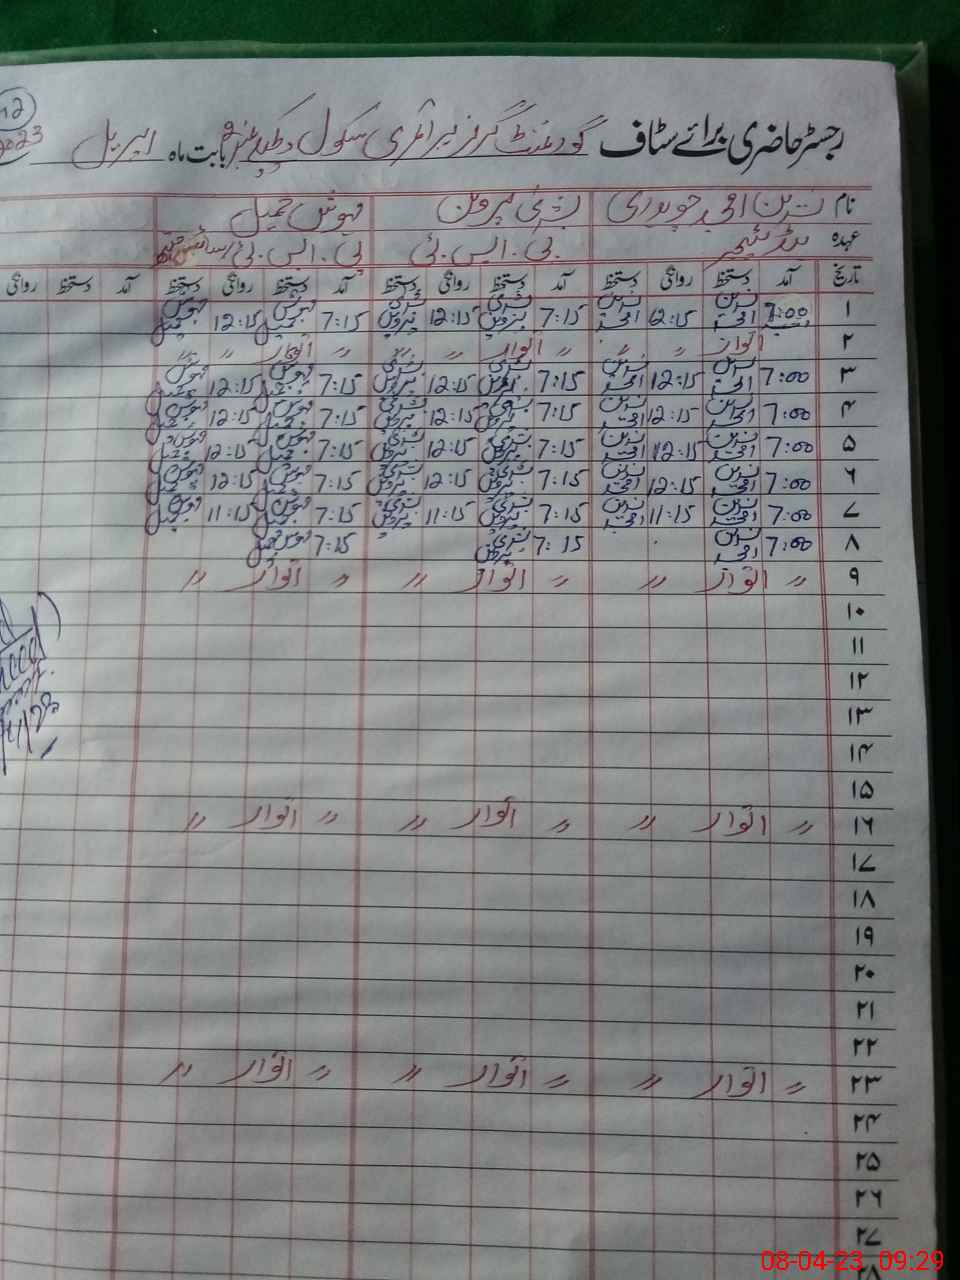 رجسٹر حاضری برائے سٹاف گورنمنٹ گرلز پرائمری سکول بابت ماہ اپریل
نام نسرین امجد چوہدری بشریٰ پروین مہوش جمیل
عہدہ ہیڈ ٹیچر پی۔ایس۔ٹی پی۔ایس۔ٹی
تاریخ آمد دستخط روانگی دستخط آمد دستخط روانگی دستخط آمد دستخط روانگی دستخط آمد دستخط روانگی
۱ 7:00 نسرین امجد 12:15 نسرین امجد 7:15 بشریٰ پروین 12:15 بشریٰ پروین 7:15 مہوش جمیل 12:15 مہوش جمیل
۲ اتوار " " " اتوار " " " اتوار " "
۳ 7:00 نسرین امجد 12:15 نسرین امجد 7:15 بشریٰ پروین 12:15 بشریٰ پروین 7:15 مہوش جمیل 12:15 مہوش جمیل
۴ 7:00 نسرین امجد 12:15 نسرین امجد 7:15 بشریٰ پروین 12:15 بشریٰ پروین 7:15 مہوش جمیل 12:15 مہوش جمیل
۵ 7:00 نسرین امجد 12:15 نسرین امجد 7:15 بشریٰ پروین 12:15 بشریٰ پروین 7:15 مہوش جمیل 12:15 مہوش جمیل
۶ 7:00 نسرین امجد 12:15 نسرین امجد 7:15 بشریٰ پروین 12:15 بشریٰ پروین 7:15 مہوش جمیل 12:15 مہوش جمیل
۷ 7:00 نسرین امجد 11:15 نسرین امجد 7:15 بشریٰ پروین 11:15 بشریٰ پروین 7:15 مہوش جمیل 11:15 مہوش جمیل
۸ 7:00 نسرین امجد 7:15 بشریٰ پروین 7:15 مہوش جمیل
۹ " اتوار " " اتوار " " اتوار "
۱۰
۱۱
۱۲
۱۳
۱۴
۱۵
۱۶ " اتوار " " اتوار " " اتوار "
۱۷
۱۸
۱۹
۲۰
۲۱
۲۲
۲۳ " اتوار " " اتوار " " اتوار "
۲۴
۲۵
۲۶
۲۷
۲۸
08-04-23 09:29